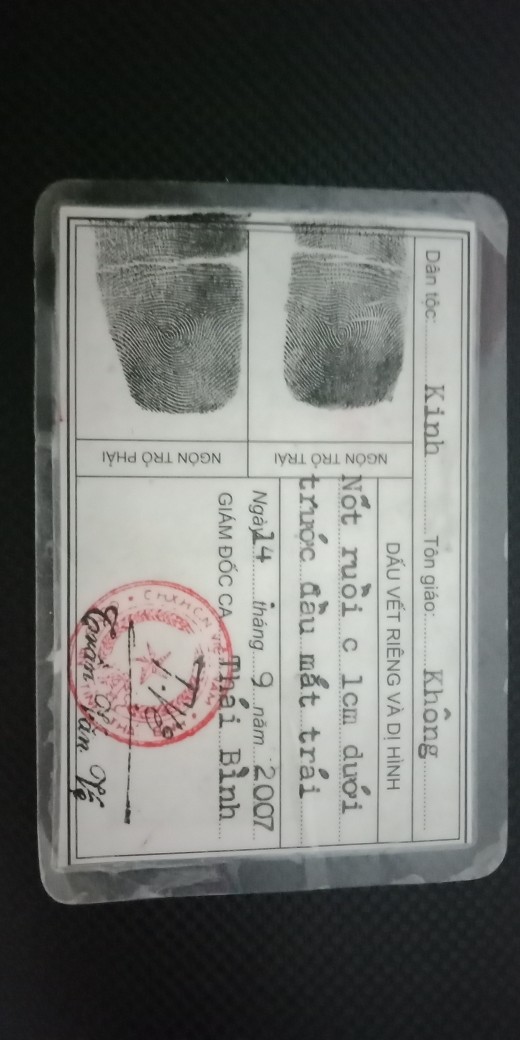 Dân tộc: Kinh Tôn giáo: Không
DẤU VẾT RIÊNG VÀ DỊ HÌNH
NGÓN TRỎ TRÁI
Nốt ruồi c 1cm dưới
trước đầu mắt trái
NGÓN TRỎ PHẢI
Ngày 14 tháng 9 năm 2007
GIÁM ĐỐC CA Thái Bình
Trần Văn Vệ